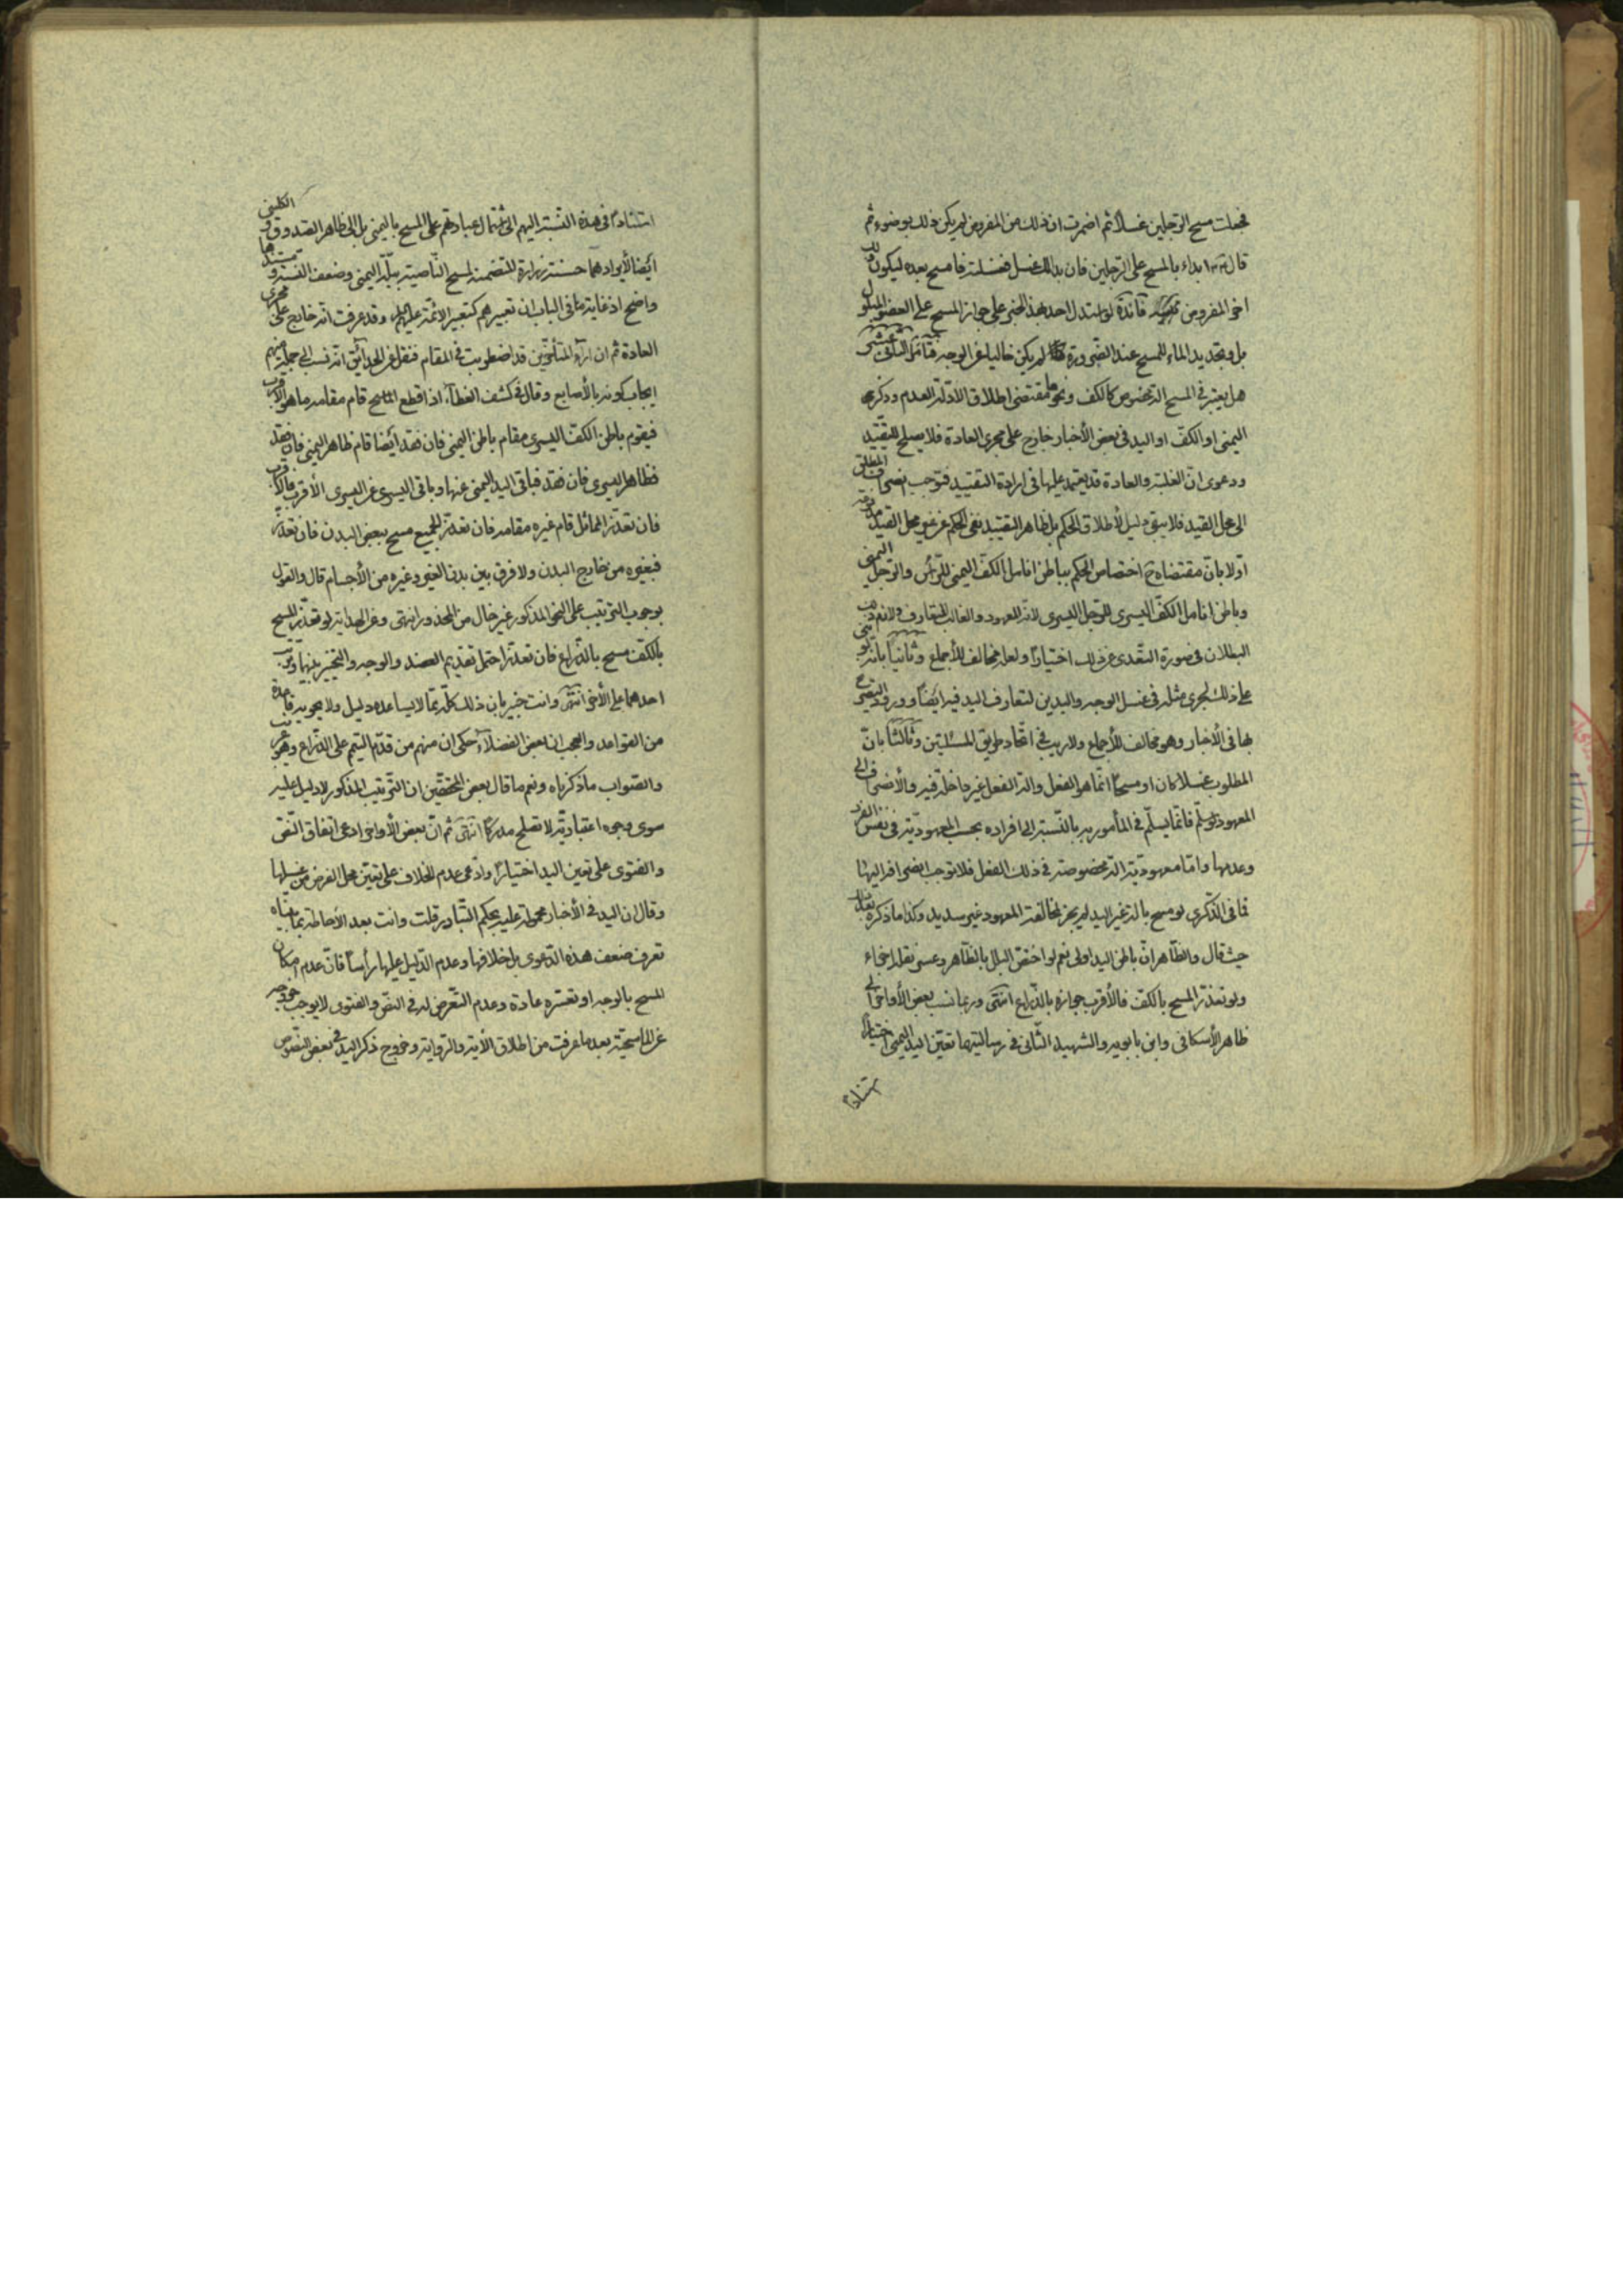 فجعلت مسح الرجلين غسلا ثم اضمرت ان ذلك من المفروض لم يكن ذلك بوضوء ثم
قال ابدء بالمسح على الرجلين فان بدا لك غسل فغسلته فامسح بعده ليكون
اخر المفروض فائدة لو استدل احد بهذا الخبر على جواز المسح على العضو المبلول
بل وتجديد الماء للمسح عند الضرورة لم يكن خاليا عن الوجه فتأمل
هل يعتبر في المسح آلة مخصوص كالكف ونحوها مقتضى اطلاق الادلة العدم وذكر
اليمنى او الكف او اليد في بعض الأخبار خارج على مجرى العادة فلا يصلح للتقييد
ودعوى ان الغلبة والعادة قد يعتمد عليها في ارادة التقييد فتوجب انصراف المطلق
الى محل القيد فلا يبقى دليل لأطلاق الحكم بل ظاهر التقييد نفي الحكم عن غير محل القيد مدفوعة
اولا بان مقتضاه ح اختصاص الحكم بباطن انامل الكف اليمنى للرأس والرجل اليمنى
وباطن انامل الكف اليسرى للرجل اليسرى لانه المعهود والغالب المتعارف
البطلان في صورة التعدى عن ذلك اختيارا ولعله مخالف للأجماع وثانيا بانه لو
على ذلك لجرى مثله في غسل الوجه واليدين لتعارف اليد فيه ايضا وورود
بها في الأخبار وهو مخالف للأجماع ولا ريب في اتحاد طريق المسئلتين وثالثا بان
المطلوب غسلا كان او مسحا انما هو الفعل والة الفعل غير داخلة فيه والأنصراف الى
المعهود لو سلم فانما يسلم في المأمور به بالنسبة الى افراده بحسب المعهودية في نفس الفرد
وعدمها واما معهودية الة مخصوصة في ذلك الفعل فلا توجب انصرافه اليها
فما في الذكرى لو مسح بالة غير اليد لم يجز لمخالفة المعهود غير سديد وكذا ما ذكره بعد ذلك
حيث قال والظاهر ان باطن اليد اولى نعم لو اختص البلل بالظاهر وعسر نقله اجزاء
ولو تعذر المسح بالكف فالأقرب جوازه بالذراع انتهى وربما نسب بعض الأواخر الى
ظاهر الأسكافي وابن بابويه والشهيد الثاني في رسالتيهما تعين اليد اليمنى اختيارا
استنادا
استنادا في هذه النسبة اليهم الى اشتمال عبادتهم على المسح باليمنى بل الى ظاهر الصدوق و الكليني
ايضا لأيرادهما حسنة زرارة المتضمنة لمسح الناصية ببلة اليمنى وضعف النسبة و مستندها
واضح اذ غاية ما في الباب ان تعبيرهم كتعبير الائمة عليهم السلام وقد عرفت انه خارج على مجرى
العادة ثم ان اراء المتأخرين قد اضطربت في المقام فنقل عن الحدائق انه نسب الى جملة منهم
ايجاب كونه بالأصابع وقال في كشف الغطاء اذا قطع الماسح قام مقامه ما هو الأقرب
فيقوم باطن الكف اليسرى مقام باطن اليمنى فان فقد ايضا قام ظاهر اليمنى فان فقد
فظاهر اليسرى فان فقد فباقى اليد اليمنى عنها وباقى اليسرى عن اليسرى الأقرب فالأقرب
فان تعذر المماثل قام غيره مقامه فان تعذر الجميع مسح ببعض البدن فان تعذر
فبغيره من خارج البدن ولا فرق بين بدن الغير وغيره من الأجسام قال والقول
بوجوب الترتيب على النحو المذكور غير خال من المحذور انتهى وعن الهداية لو تعذر المسح
بالكف مسح بالذراع فان تعذر احتمل تقديم العضد والوجه والتخيير بينهما
احدهما على الأخر انتهى وانت خبير بان ذلك كله مما لا يساعده دليل ولا يحويه قاعدة
من القواعد والعجب ان بعض الفضلاء حكى ان منهم من قدم التيمم على الذراع وهو غريب
والصواب ما ذكرناه ونعم ما قال بعض المحققين ان الترتيب المذكور لا دليل عليه
سوى وجوه اعتبارية لا تصلح مدركا انتهى ثم ان بعض الأواخر ادعى اتفاق النص
والفتوى على تعين اليد اختيارا وادعى عدم الخلاف على تعين محل الفرض من غسلها
وقال ان اليد في الأخبار محمولة عليه بحكم التبادر قلت وانت بعد الأحاطة بما بيناه
تعرف ضعف هذه الدعوى بل خلافها وعدم الدليل عليها رأسا فان عدم امكان
المسح بالوجه او تعسره عادة وعدم التعرض له في النص والفتوى لا يوجب خروجه
عن الماسحية بعد ما عرفت من اطلاق الأية والرواية وخروج ذكر اليد في بعض النصوص